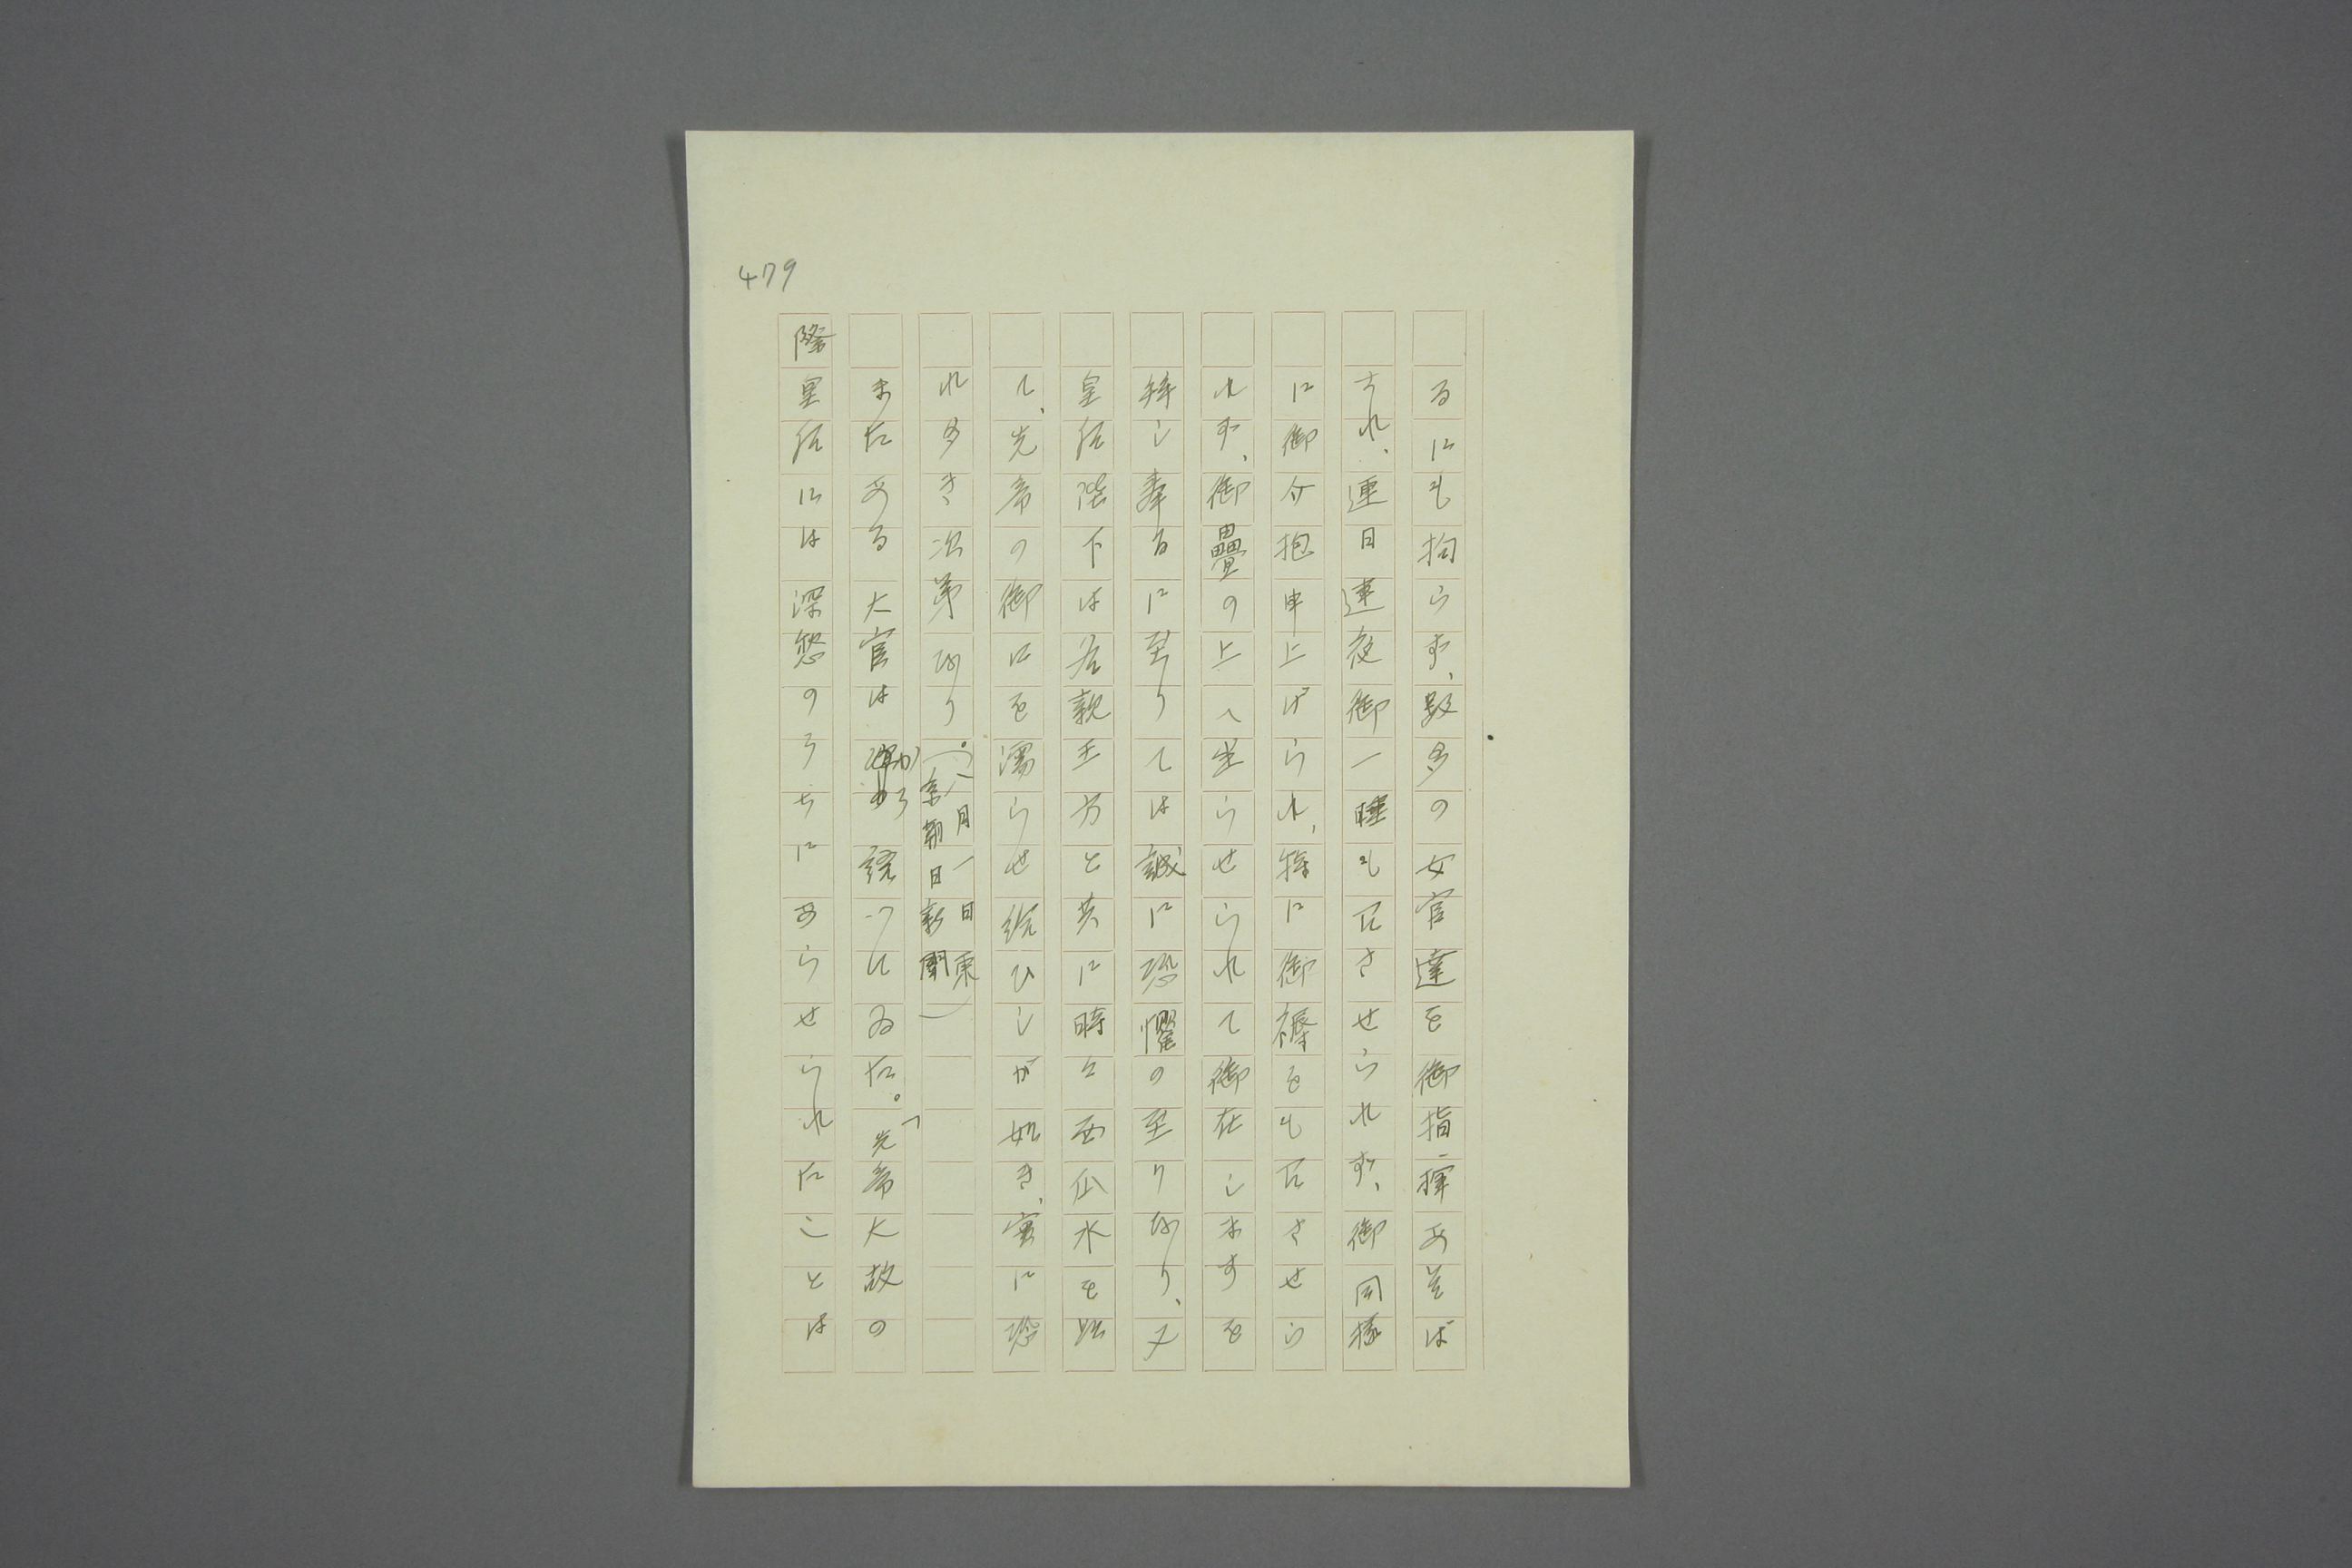 479
るにも拘らず、数多の女官達を御指揮あそば
され、連日連夜御一睡も召させられず、御同様
に御介抱申上げられ、特に御褥をも召させら
れず、御疊の上へ坐らせられて御在しますを
拝し奉るに至りては誠に恐懼の至りなり、又
皇后陛下は各親王方と共に時々西仏水を以
て、先帝の御口を濡らせ給ひしが如き、実に恐
れ多き次第なり。(八月一日東京朝日新聞)
またある大官は、かう語つてゐた。「先帝大故の
際皇后には深愁のうちにあらせられたことは